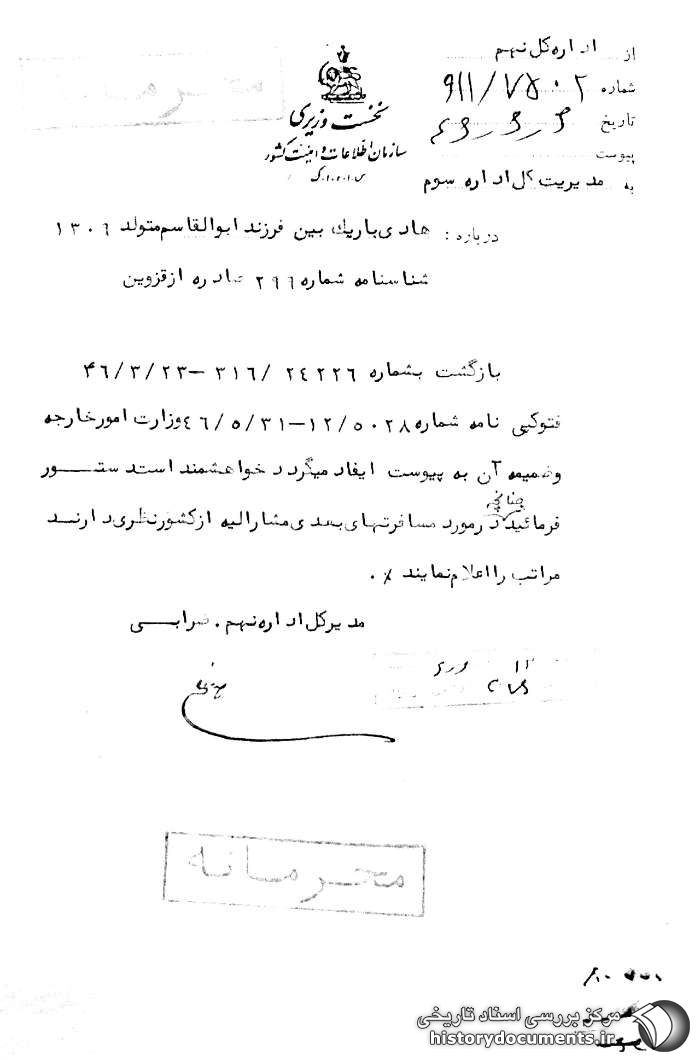 محرمانه
از اداره کل نهم
شماره ۹۱۱/۷۵۰۲
تاریخ
پیوست
به مدیریت کل اداره سوم
نخست وزیری
سازمان اطلاعات و امنیت کشور
س.ا.و.ا.ک
درباره : هادی باریک بین فرزند ابوالقاسم متولد ۱۳۰۹
شناسنامه شماره ۲۹۹ صادره از قزوین
بازگشت بشماره ۲۴۲۲۶ /۳۱۶ -۴۶/۳/۲۳
فتوکپی نامه شماره ۱۲/۵۰۲۸-۴۶/۵/۳۱ وزارت امور خارجه
وضمیمه آن به پیوست ایفاد میگردد خواهشمند است دستور
فرمائید چنانچه در مورد مسافرتهای بعدی مشارالیه از کشور نظری دارند
مراتب را اعلام نمایند ٪.
مدیر کل اداره نهم . ضرابی
محرمانه
مرکز بررسی اسناد تاریخی
historydocuments.ir